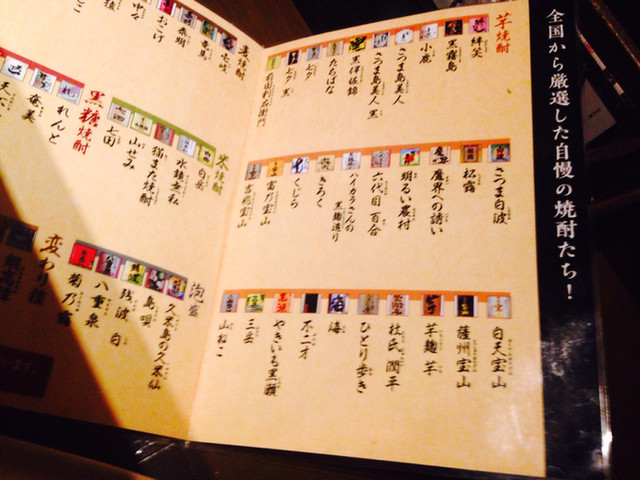 全国から厳選した自慢の焼酎たち！
芋焼酎
絆笑
黒霧島
小鹿
さつま島美人
さつま島美人 黒
黒伊佐錦
たちばな
七夕
七夕 黒
前田利右衛門
さつま白波
松露
魔界への誘い
明るい農村
六代目 百合
ハイカラさんの
黒麹造り
きろく
くじら
富乃宝山
吉兆宝山
白天宝山
薩州宝山
芋麹芋
杜氏潤平
ひとり歩き
海
不二才
やきいも黒瀬
三岳
山ねこ
麦焼酎
壱岐
中々
米焼酎
白岳
水鏡無私
山せみ
七田
黒糖焼酎
れんと
奄美
泡盛
久米島の久米仙
島唄
残波 白
八重泉
菊乃露
変わり種